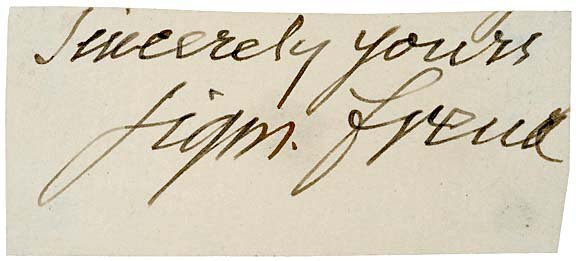 Sincerely yours
Sigm. Freud